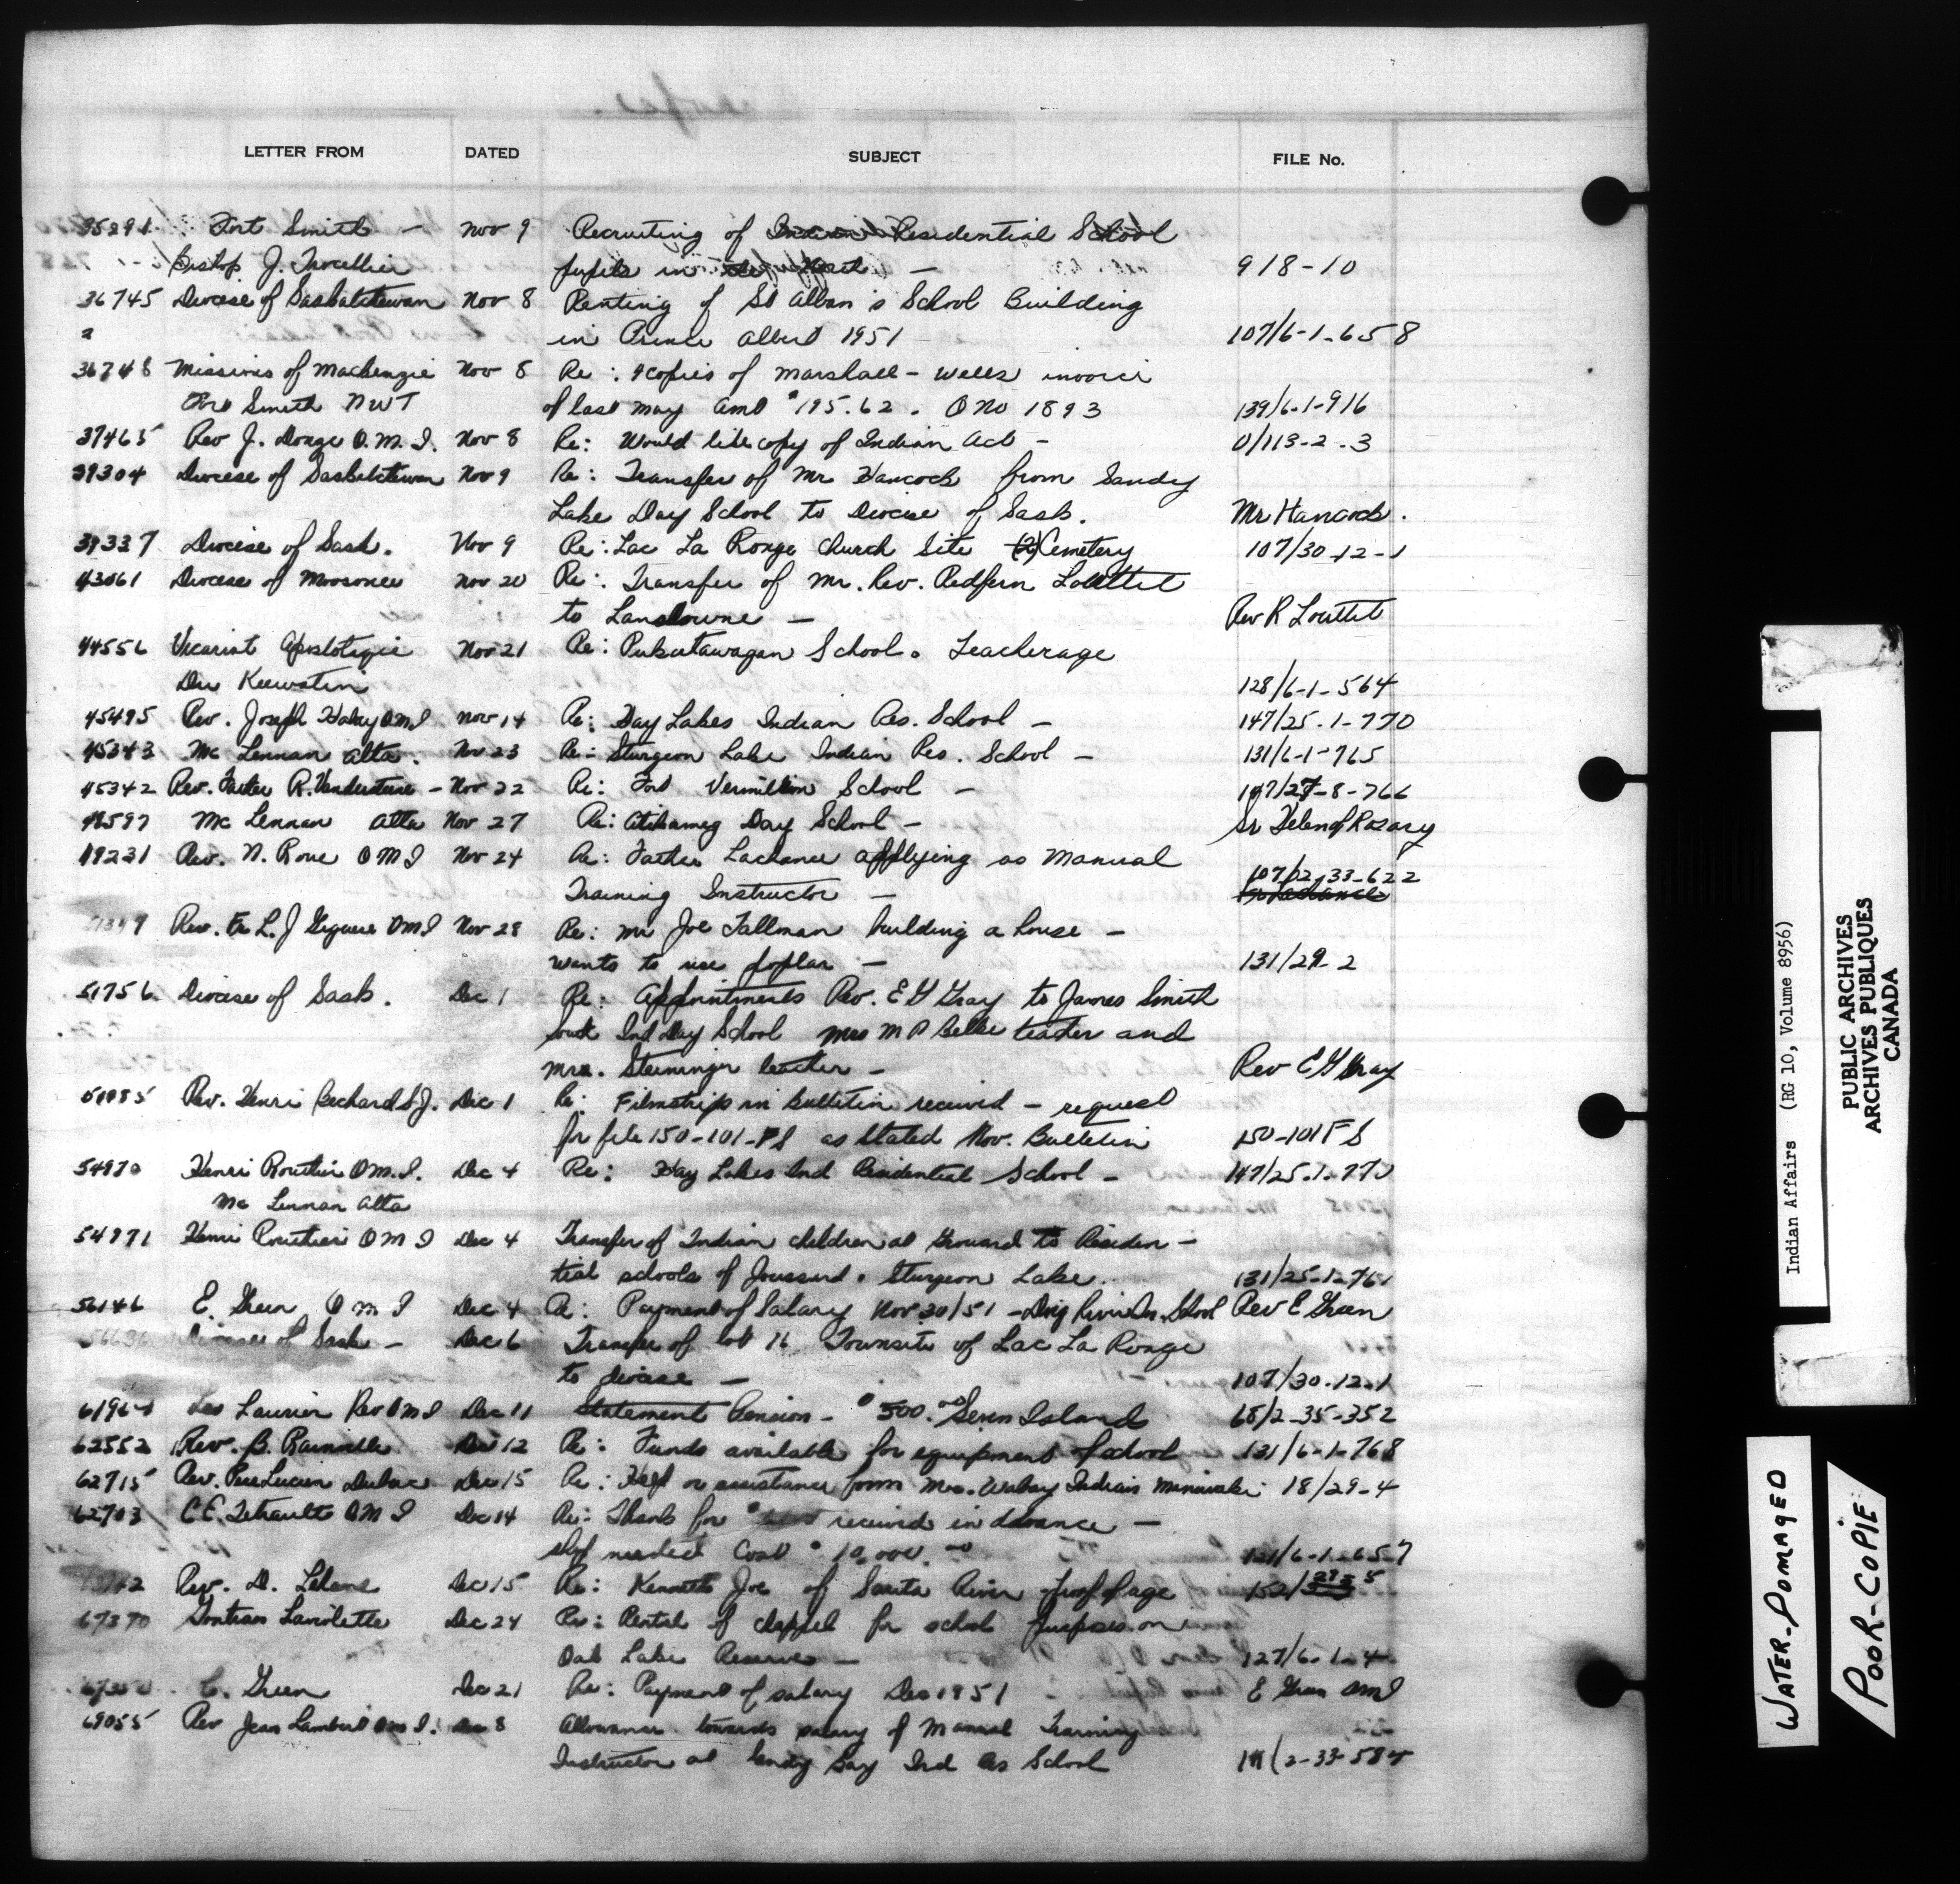 LETTER FROM DATED SUBJECT FILE No.
35291 Fort Smith - Nov 9 Recruiting of Indian Residential School
Bishop J. Trocellier pupils in the North - 918-10
36745 Diocese of Saskatchewan Nov 8 Renting of St Alban's School Building
in Prince Albert 1951 107/6-1-658
36748 Missions of Mackenzie Nov 8 Re: 4 copies of Marshall-Wells invoice
Fort Smith NWT of last May Amt $195.62. O No 1893 139/6-1-916
37465 Rev J. O.M.I. Nov 8 Re: Would like copy of Indian Act - 0/113-2-3
39304 Diocese of Saskatchewan Nov 9 Re: Transfer of Mr Hancock from Sandy
Lake Day School to Diocese of Sask. Mr Hancock.
39337 Diocese of Sask. Nov 9 Re: Lac La Ronge Church Site (2) Cemetery 107/30-12-1
43061 Diocese of Moosonee Nov 20 Re: Transfer of Mr. Rev. Redfern Louttit
to Lansdowne - Rev R Louttit
44556 Vicariat Apostolique Nov 21 Re: Pukatawagan School. Teacherage
Du Keewatin 128/6-1-564
45495 Rev. Joseph OMI Nov 14 Re: Hay Lakes Indian Res. School - 147/25-1-770
45343 Mc Lennan Alta. Nov 23 Re: Sturgeon Lake Indian Res. School - 131/6-1-765
45342 Rev. Father R. - Nov 22 Re: Fort Vermillion School - 147/27-8-766
48597 Mc Lennan Alta Nov 27 Re: Atikameg Day School - Sr Helen of Rosary
49231 Rev. N. OMI Nov 24 Re: Father Lachance applying as Manual
Training Instructor - 107/2-33-622
Fr Lachance
Rev. Fr L. J Giguere OMI Nov 28 Re: Mr Joe Tallman building a house -
wants to use poplar - 131/29-2
51756 Diocese of Sask. Dec 1 Re: Appointments Rev. E G Gray to James Smith
South Ind Day School Mrs M P teacher and
Mrs. Steininger teacher - Rev E G Gray
Rev. Henri Bechard S.J. Dec 1 Re: Filmstrips in Bulletin received - request
for file 150-101-FS as stated Nov. Bulletin 150-101FS
54970 Henri Routhier O.M.I. Dec 4 Re: Hay Lakes Ind Residential School - 147/25-1-770
Mc Lennan Alta
54971 Henri Routhier OMI Dec 4 Transfer of Indian children at Grouard to Residen-
tial schools of Joussard. Sturgeon Lake. 131/25-1-761
56146 E. Green OMI Dec 4 Re: Payment of Salary Nov 30/51 - Doig River School Rev E Green
Diocese of Sask - Dec 6 Transfer of lot 16 Townsite of Lac La Ronge
to diocese - 107/30-12-1
Leo Laurin Rev OMI Dec 11 Statement Pension - $500.00 Seven Islands 65/2-35-352
62552 Rev. B. Rainville Dec 12 Re: Funds available for equipment of school 131/6-1-768
62715 Rev. Pere Lucien Dubuc Dec 15 Re: Help or assistance from Mrs. Indian Maniwaki 18/29-4
62703 C.E. Tetrault OMI Dec 14 Re: Thanks for $ received in advance -
needed Cost $10,000.00 121/6-1-657
Rev. D. Dec 15 Re: Kenneth Joe of River proof of age
67370 Gontran Laviolette Dec 24 Re: Rental of chappel for school purposes on
Oak Lake Reserve - 127/6-1-4
E. Green Dec 21 Re: Payment of salary Dec 1951 E Green OMI
69055 Rev Jean Lambert OMI. Dec 8 Allowance towards salary of Manual Training
Instructor at Sandy Bay Ind Res School
Indian Affairs (RG 10, Volume 8956)
PUBLIC ARCHIVES
ARCHIVES PUBLIQUES
CANADA
WATER-DOMAGED
POOR-COPIE